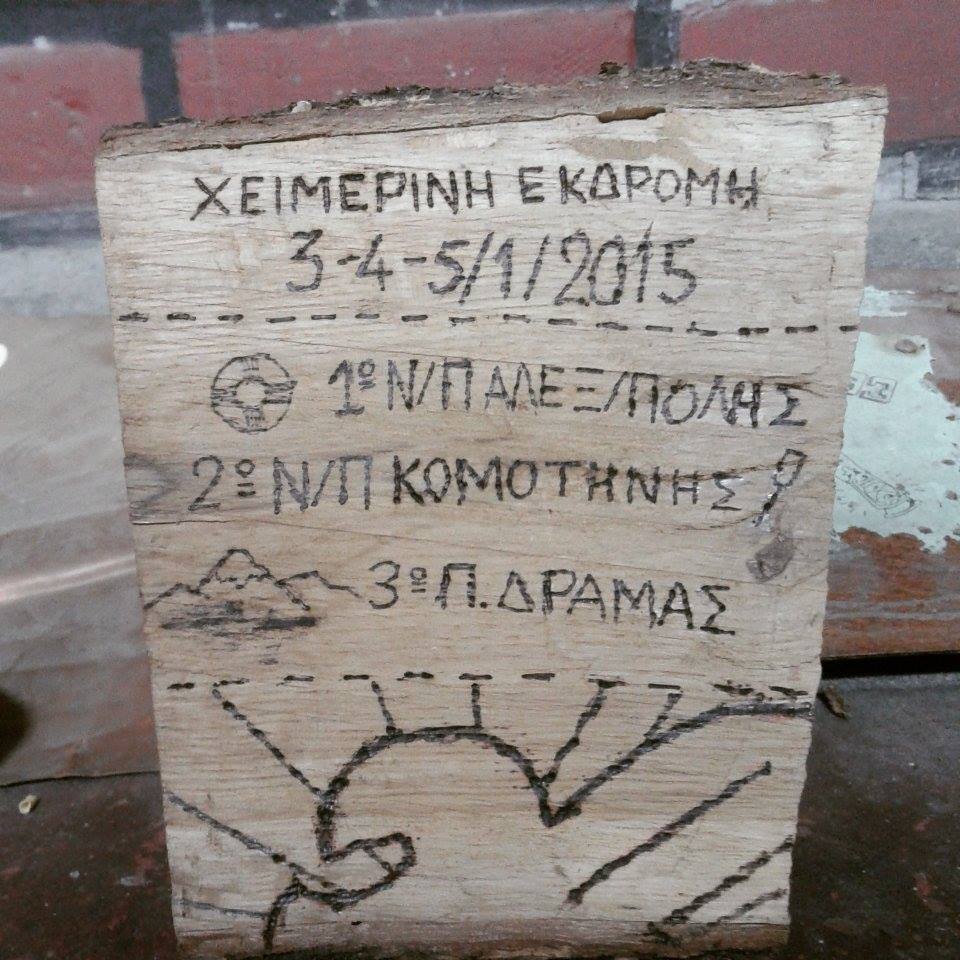 ΧΕΙΜΕΡΙΝΗ ΕΚΔΡΟΜΗ
3-4-5/1/2015
1º Ν/Π ΑΛΕΞ/ΠΟΛΗΣ
2º Ν/Π ΚΟΜΟΤΗΝΗΣ
3º Π. ΔΡΑΜΑΣ